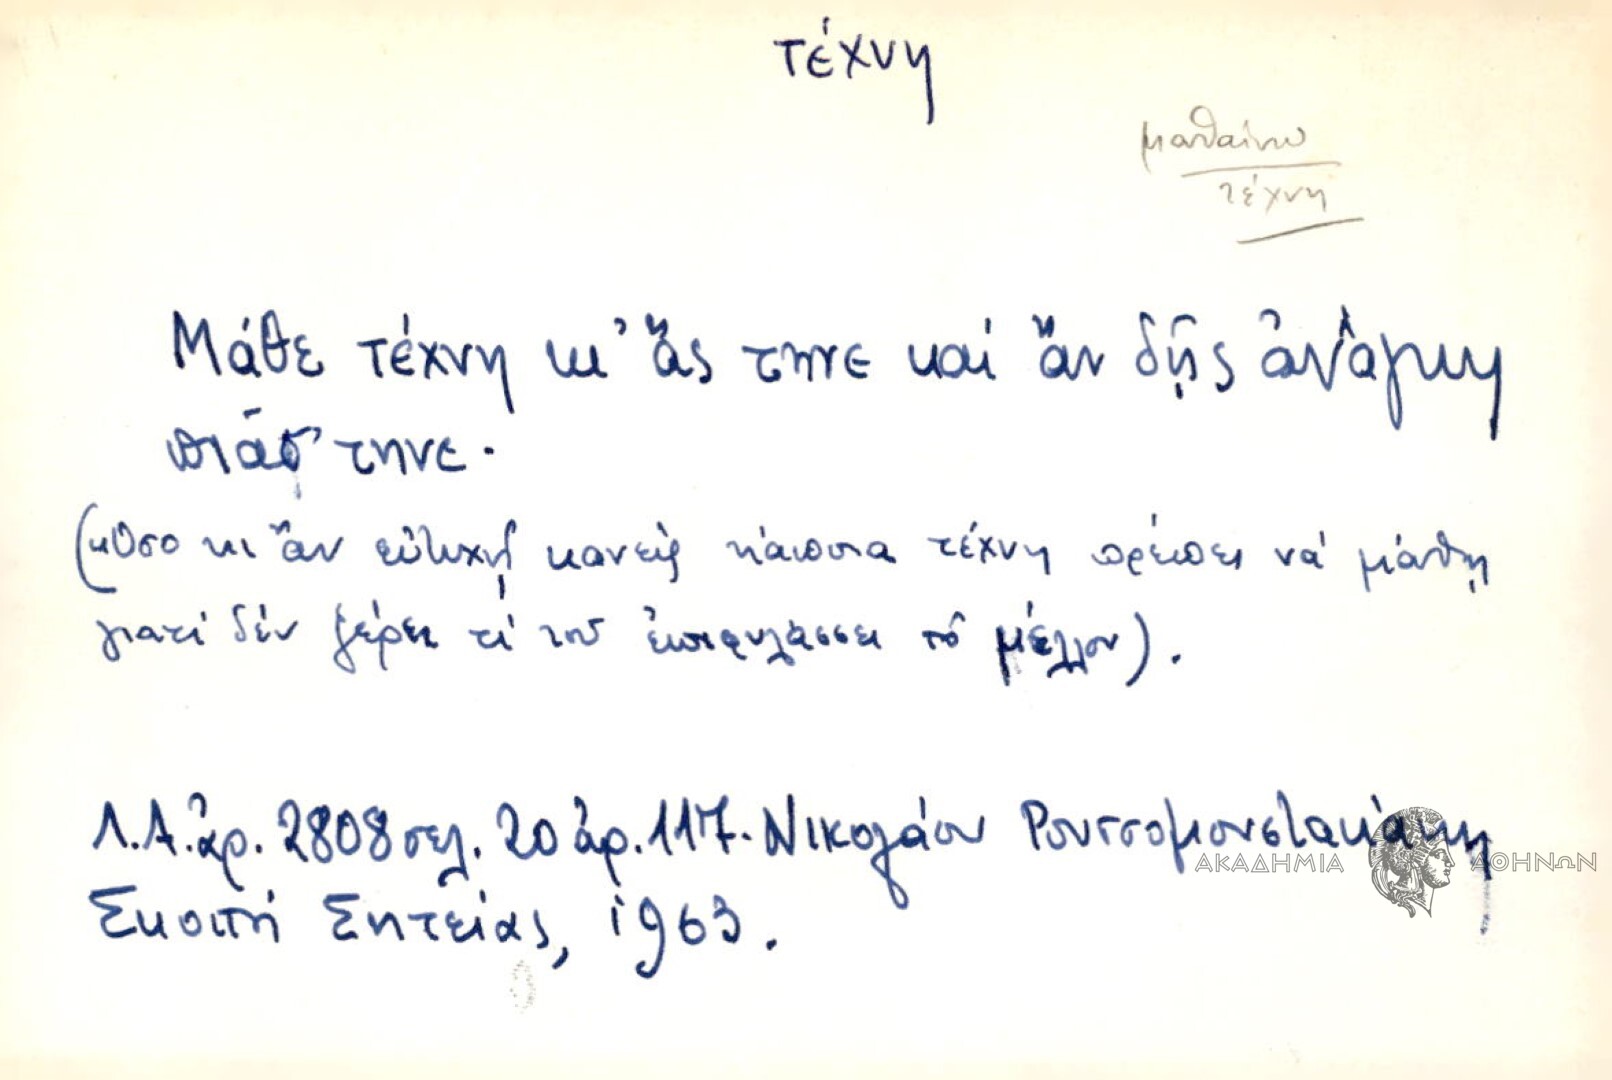 τέχνη
μαθαίνω
τέχνη
Μάθε τέχνη κι' ἄς τηνε καί ἄν δῇς ἀνάγκη
πιάσ' τηνε.
(κὅσο κι ἄν εὐτυχῇ κανείς κάποια τέχνη πρέπει νά μάθῃ
γιατί δέν ξέρει τί τοῦ ἐπιφυλάσσει τό μέλλον).
Λ.Α. ἀρ. 2808 σελ. 20 ἀρ. 117. Νικολάου Ρουτσομουστακάκη
Σκοπή Σητείας, 1963.
ΑΚΑΔΗΜΙΑ ΑΘΗΝΩΝ